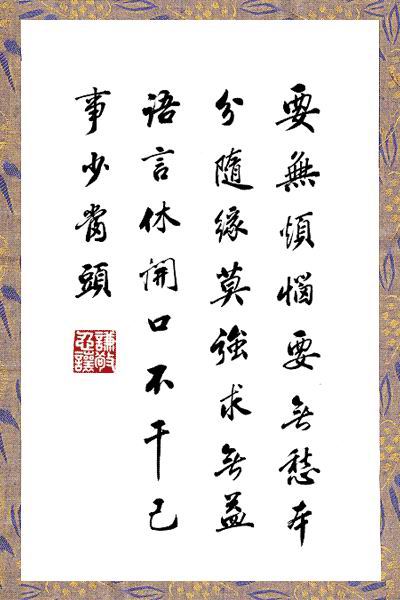 要無煩惱要無愁本
分隨緣莫強求無益
語言休開口不干己
事少當頭
謙敬
忍讓